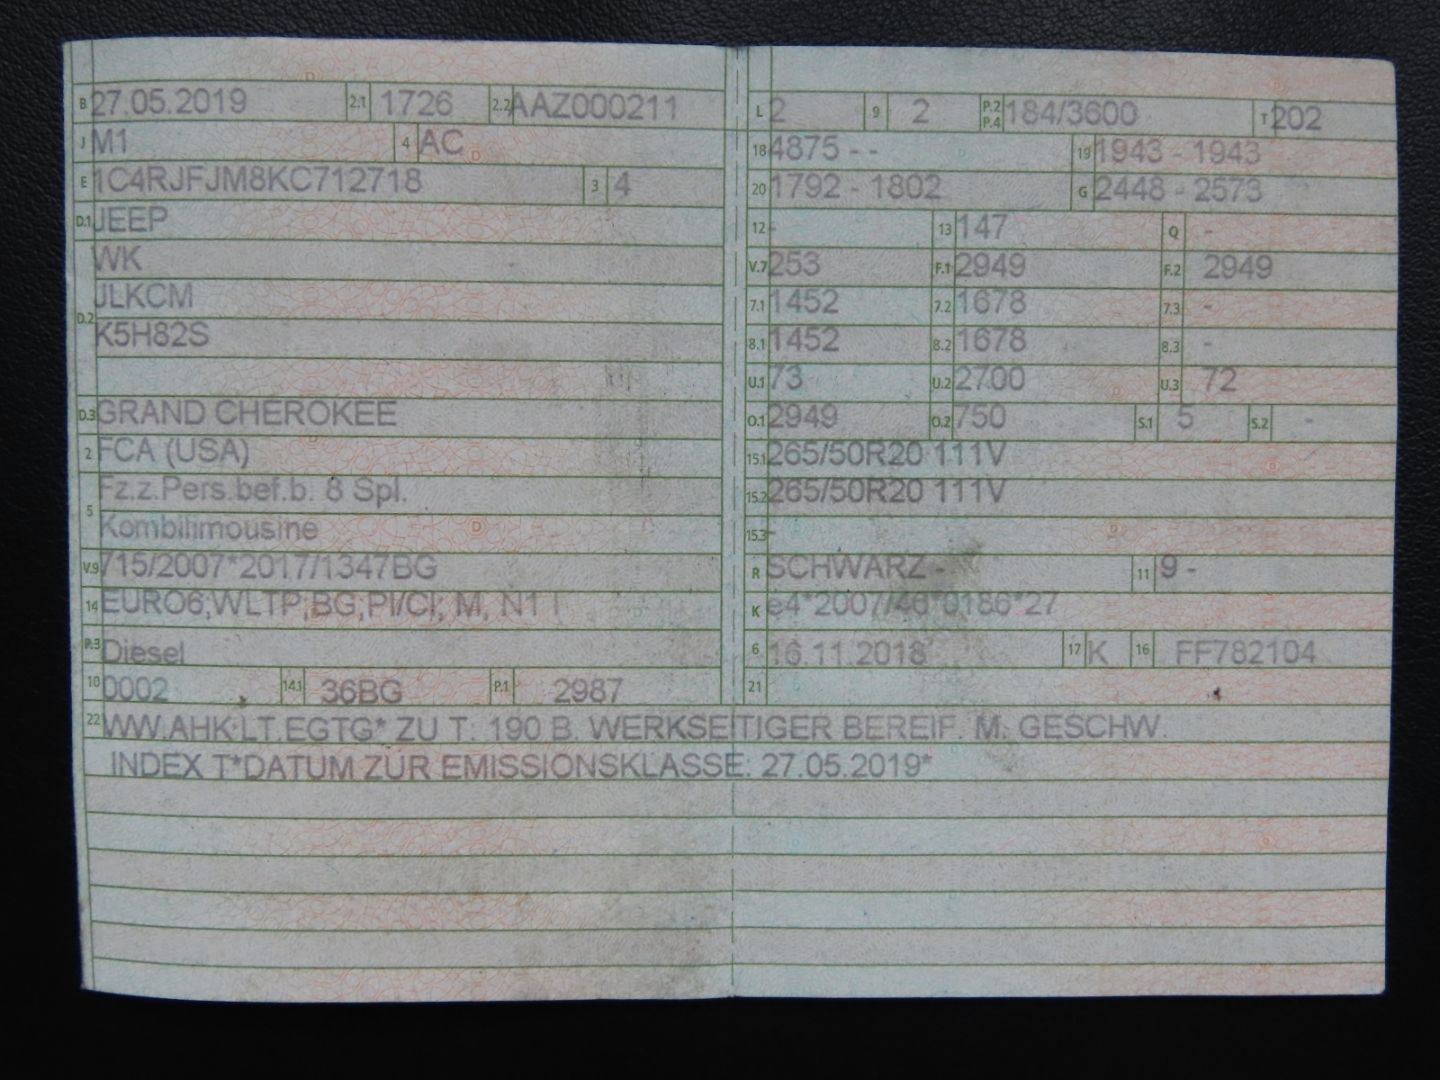 B 27.05.2019 2.1 1726 2.2 AAZ000211
J M1 4 AC
E 1C4RJFJM8KC712718 3 4
D.1 JEEP
WK
D.2 JLKCM
K5H82S
D.3 GRAND CHEROKEE
2 FCA (USA)
5 Fz.z.Pers.bef.b. 8 Spl.
Kombilimousine
V.9 715/2007*2017/1347BG
14 EURO6;WLTP;BG;PI/CI; M, N1 I
P.3 Diesel
10 0002 14.1 36BG P.1 2987
L 2 9 2 P.2 P.4 184/3600 T 202
18 4875 - - 19 1943 - 1943
20 1792 - 1802 G 2448 - 2573
12 - 13 147 Q -
V.7 253 F.1 2949 F.2 2949
7.1 1452 7.2 1678 7.3 -
8.1 1452 8.2 1678 8.3 -
U.1 73 U.2 2700 U.3 72
O.1 2949 O.2 750 S.1 5 S.2 -
15.1 265/50R20 111V
15.2 265/50R20 111V
15.3 -
R SCHWARZ - 11 9 -
K e4*2007/46*0186*27
6 16.11.2018 17 K 16 FF782104
21
22 WW.AHK LT.EGTG* ZU T: 190 B. WERKSEITIGER BEREIF. M. GESCHW.
INDEX T*DATUM ZUR EMISSIONSKLASSE: 27.05.2019*